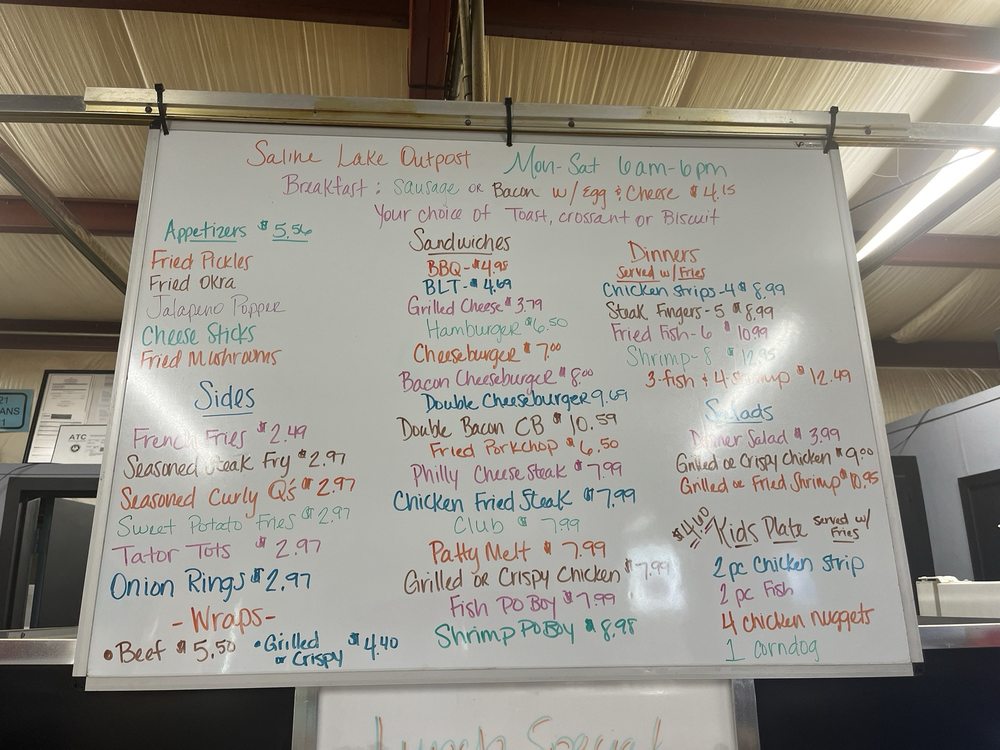 Saline Lake Outpost Mon-Sat 6am-6pm
Breakfast: Sausage or Bacon w/Egg & Cheese $4.15
Your choice of Toast, crossant or Biscuit
Appetizers $5.56
Fried Pickles
Fried Okra
Jalapeno Popper
Cheese Sticks
Fried Mushrooms
Sides
French Fries $2.49
Seasoned Steak Fry $2.97
Seasoned Curly Q's $2.97
Sweet Potato Fries $2.97
Tator Tots $2.97
Onion Rings $2.97
-Wraps-
• Beef $5.50 • Grilled or Crispy $4.40
Sandwiches
BBQ-$4.98
BLT-$4.69
Grilled Cheese $3.79
Hamburger $6.50
Cheeseburger $7.00
Bacon Cheeseburger $8.00
Double Cheeseburger 9.69
Double Bacon CB $10.59
Fried Porkchop $6.50
Philly Cheese Steak $7.99
Chicken Fried Steak $7.99
Club $7.99
Patty Melt $7.99
Grilled or Crispy Chicken $7.99
Fish Po Boy $7.99
Shrimp Po Boy $8.98
Dinners
Served w/Fries
Chicken Strips-4 $8.99
Steak Fingers-5 $8.99
Fried Fish-6 $10.99
Shrimp-8 $12.95
3-fish + 4 shrimp $12.49
Salads
Dinner Salad $3.99
Grilled or Crispy Chicken $9.00
Grilled or Fried Shrimp $10.95
$4.60 Kids Plate Served w/ Fries
2 pc Chicken Strip
2 pc Fish
4 chicken nuggets
1 corndog
Lunch Special
ATC